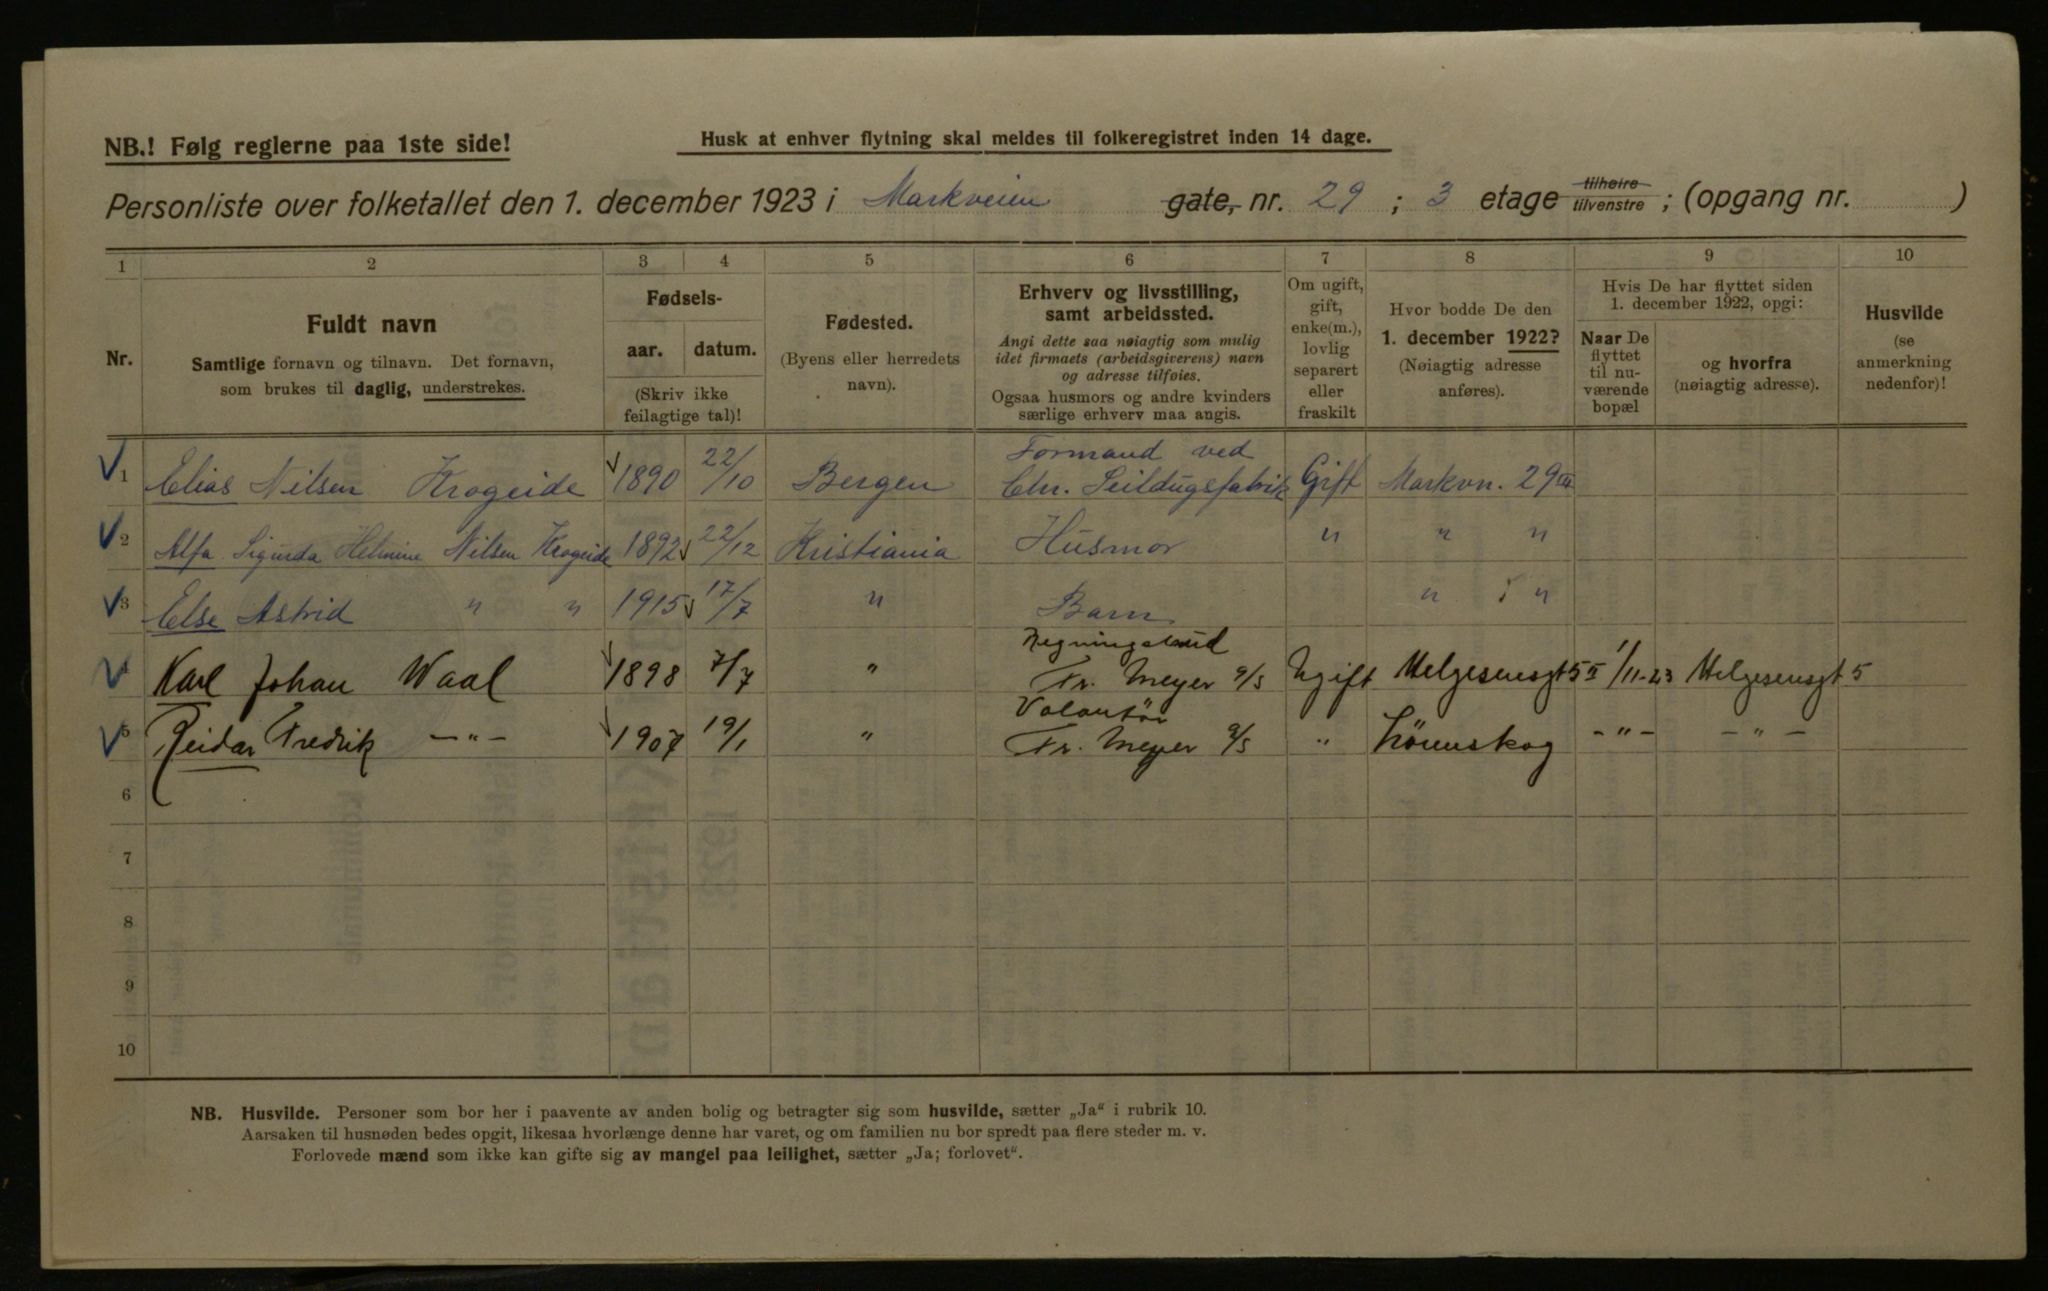 NB.! Følg reglerne paa 1ste side!
Husk at enhver flytning skal meldes til folkeregistret inden 14 dage.
Personliste over folketallet den 1. december 1923 i Markveien gate, nr. 29 ; 3 etage tilhøire tilvenstre ; (opgang nr. )
1 2 3 4 5 6 7 8 9 10
Nr.
Fuldt navn
Samtlige fornavn og tilnavn. Det fornavn,
som brukes til daglig, understrekes.
Fødsels-
aar. datum.
(Skriv ikke
feilagtige tal)!
Fødested.
(Byens eller herredets
navn).
Erhverv og livsstilling,
samt arbeidssted.
Angi dette saa nøiagtig som mulig
idet firmaets (arbeidsgiverens) navn
og adresse tilføies.
Ogsaa husmors og andre kvinders
særlige erhverv maa angis.
Om ugift,
gift,
enke(m.),
lovlig
separert
eller
fraskilt
Hvor bodde De den
1. december 1922?
(Nøiagtig adresse
anføres).
Hvis De har flyttet siden
1. december 1922, opgi:
Naar De
flyttet
til nu-
værende
bopæl
og hvorfra
(nøiagtig adresse).
Husvilde
(se
anmerkning
nedenfor)!
1 Elias Nilsen Krogeide 1890 22/10 Bergen Formand ved Chr. Seildugsfabrik Gift Markvn. 29 III
2 Alfa Sigurda Helmine Nilsen Krogeide 1892 22/12 Kristiania Husmor " " "
3 Else Astrid " " 1915 17/7 " Barn " "
4 Karl Johan Waal 1898 7/7 " Regningsbud Fr. Meyer a/s Ugift Helgesensgt 5 II 1/11-23 Helgesensgt 5
5 Reidar Fredrik -"- 1907 19/1 " Volontör Fr. Meyer a/s " Lörenskog -"- -"-
6
7
8
9
10
NB. Husvilde. Personer som bor her i paavente av anden bolig og betragter sig som husvilde, sætter „Ja“ i rubrik 10.
Aarsaken til husnøden bedes opgit, likesaa hvorlænge denne har varet, og om familien nu bor spredt paa flere steder m. v.
Forlovede mænd som ikke kan gifte sig av mangel paa leilighet, sætter „Ja; forlovet“.